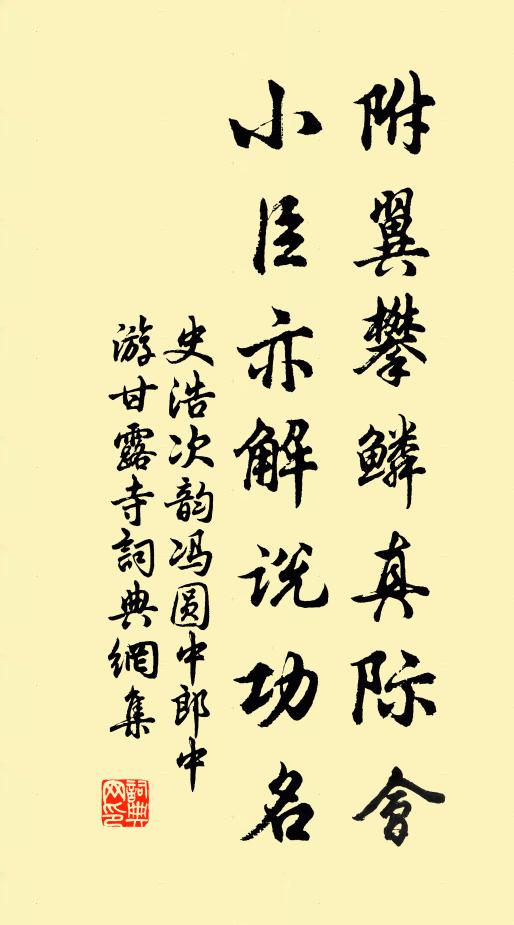 附翼攀鳞真际會
小臣亦解说功名
史浩次韵冯圆中郎中
游甘露寺詞典網集
詞典
网印